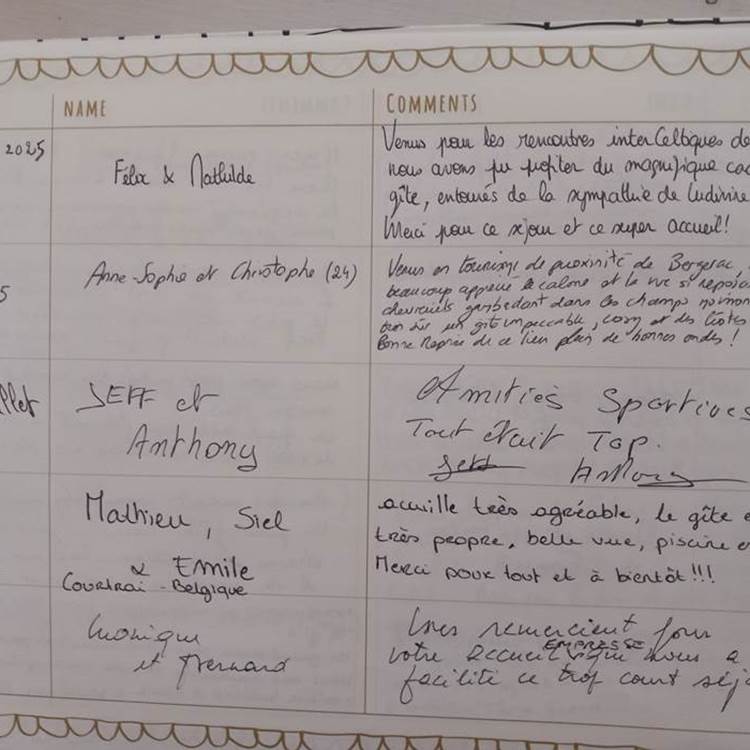 NAME
COMMENTS
2025
Félix & Mathilde
Venus pour les rencontres interCeltiques de
nous avons pu profiter du magnifique cad
gîte, entourés de la sympathie de Ludivine
Merci pour ce séjour et ce super accueil!
5
Anne-Sophie et Christophe (24)
Venus en tourisme de proximité de Bergerac,
beaucoup apprécié le calme et la vue si reposan
chevreuils gambadant dans les champs
bien sûr un gîte impeccable, cosy et des
Bonne Reprise de ce lieu plein de bonnes ondes!
llet
JEFF et
Anthony
Amitiés Sportives
Tout était Top.
Jeff Anthony
Mathieu, Siel
& Emile
Courtrai - Belgique
accuille très agréable, le gîte e
très propre, belle vue, piscine e
Merci pour tout et à bientôt!!!
Monique
et Bernard
remercient pour
EMPRESSE
votre accueil qui nous a
facilité ce trop court séjo